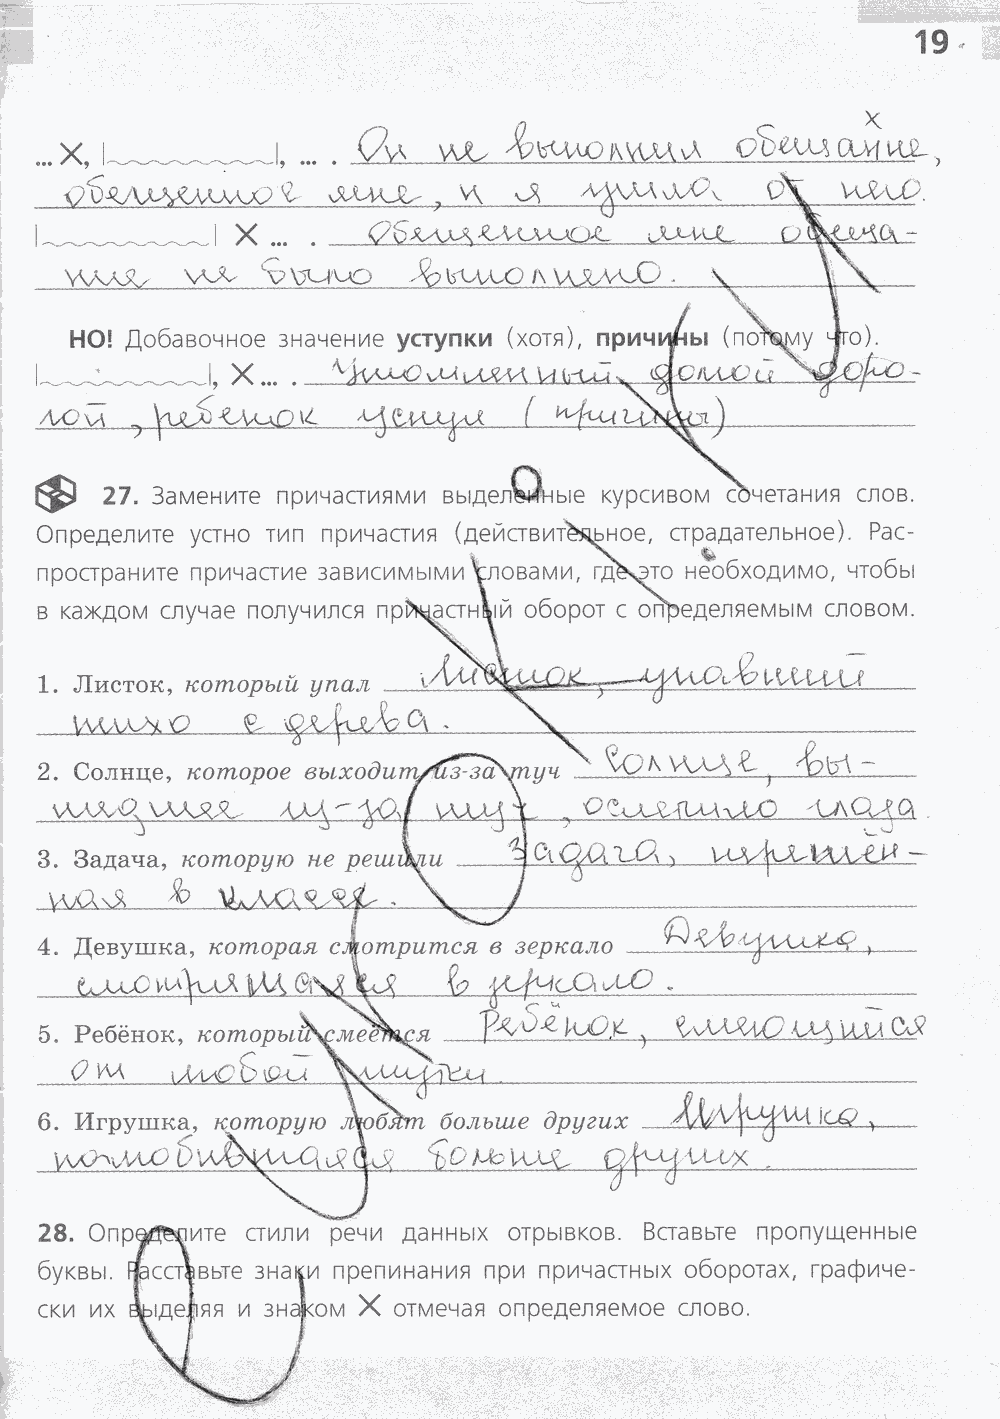 19
... ✕, |﹏﹏﹏|, ... . Он не выполнил обещание,
обещенное мне, и я ушла от него.
|﹏﹏﹏| ✕ ... . Обещенное мне обеща-
ние не было выполнено.
НО! Добавочное значение уступки (хотя), причины (потому что).
|﹏﹏﹏|, ✕ ... . Утомленный долгой доро-
гой, ребенок уснул (причины)
27. Замените причастиями выделенные курсивом сочетания слов.
Определите устно тип причастия (действительное, страдательное). Рас-
пространите причастие зависимыми словами, где это необходимо, чтобы
в каждом случае получился причастный оборот с определяемым словом.
1. Листок, который упал Листок, упавший
тихо с дерева.
2. Солнце, которое выходит из-за туч Солнце, вы-
шедшее из-за туч, ослепило глаза.
3. Задача, которую не решили Задача, нерешён-
ная в классе.
4. Девушка, которая смотрится в зеркало Девушка,
смотрящаяся в зеркало.
5. Ребёнок, который смеётся Ребёнок, смеющийся
от любой шутки.
6. Игрушка, которую любят больше других Игрушка,
полюбившаяся больше других.
28. Определите стили речи данных отрывков. Вставьте пропущенные
буквы. Расставьте знаки препинания при причастных оборотах, графиче-
ски их выделяя и знаком ✕ отмечая определяемое слово.